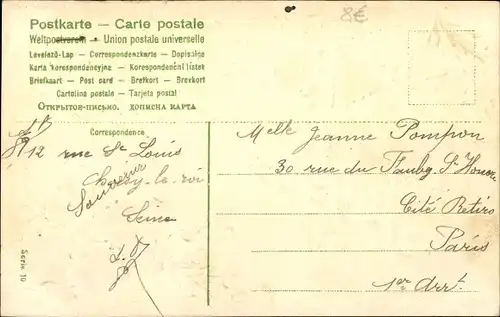 8€
Postkarte — Carte postale
Weltpostverein — Union postale universelle
Levelező-Lap — Correspondenzkarte — Dopisnice
Karta korespondencyjna — Korespondenční lístek
Briefkaart — Post card — Brefkort — Brevkort
Cartolina postale — Tarjeta postal
Открытое-письмо. Дописна карта
Correspondence
12 rue St Louis
Choisy-le-roi
Souvenir
Seine
Serie 10
Melle Jeanne Pompon
30 rue du Faubg. St Honoré
Cité Retiro
Paris
1er Arrt.